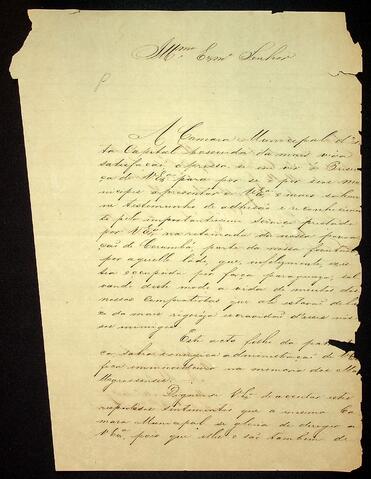 Illmo. Exmo. Senhor
A Camara Municipal d'es
ta Capital possuida da mais viva
satisfação apressa-se em vir á Presen
ça de V. Exa. para por si e por seus mu
nicipes apresentar a V. Exa. o mais solemne
testemunho de adhesão e reconhecimen
to pelo importantissimo serviço prestado
por V. Exa. na retomada da nossa povo
ação de Corumbá, parte da nossa fronteira
por aquelle lado, que, infelizmente, exis
tia occupada por força paraguaya, sal
vando deste modo a vida de muitos dos
nossos compatriotas que alli estavão debai
xo da mais rigorosa severidade desses nos
sos inimigos.
Este acto filho da
sabia e energica administração de V. Exa.
fica immorredouro na memoria dos Matto
Grossenses.
Digne-se V. Exa. de acceitar estes
respeitosos sentimentos que a mesma Ca
mara Municipal se gloria de dirigir a
V. Exa., pois que elles o são tambem de